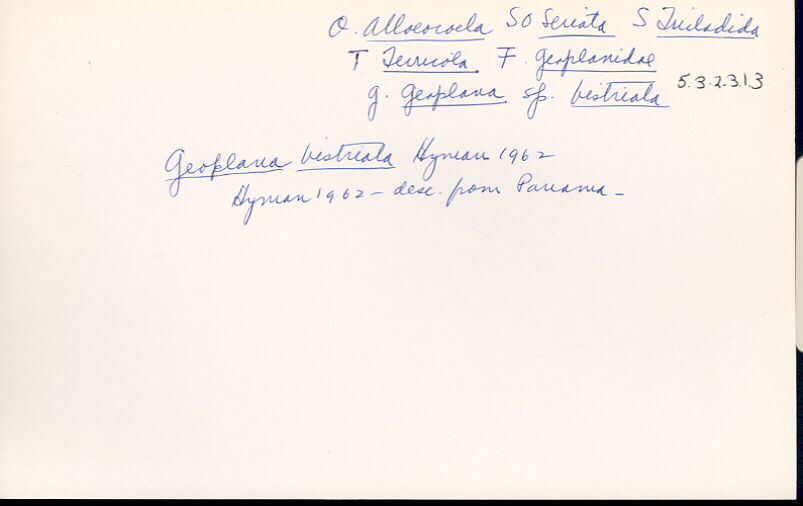 O. Alloeocoela SO Seriata S Tricladida
T Terricola F. Geoplanidae
g. Geoplana sp. bistriata 5.3.2.3.1.3
Geoplana bistriata Hyman 1962
Hyman 1962 – desc. from Panama –